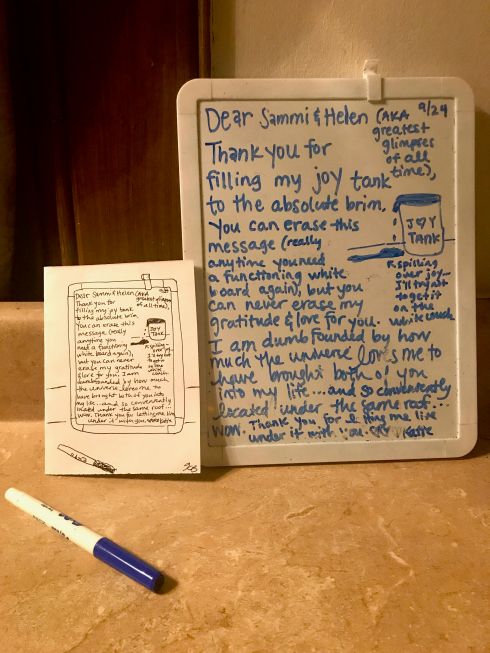 Dear Sammi & Helen (AKA 9/29
greatest
glimpses
of all
time),
Thank you for
filling my joy tank
to the absolute brim.
You can erase this
message (really
anytime you need
a functioning white
board again), but you
can never erase my
gratitude & love for you.
I am dumbfounded by how
much the universe loves me to
have brought both of you
into my life...and so conveniently
located under the same roof...
wow. Thank you for letting me live
under it with you. Katie
JOY
TANK
spilling
over joy...
I'll try not
to get it
on the
white couch
Dear Sammi & Helen (AKA
greatest glimpses
of all time),
Thank you for
filling my joy tank
to the absolute brim.
You can erase this
message (really
anytime you
need a functioning
white board again),
but you can never
erase my gratitude
& love for you. I am
dumbfounded by how much
the universe loves me to
have brought both of you into
my life...and so conveniently
located under the same roof...
wow. Thank you for letting me live
under it with you.
JOY
TANK